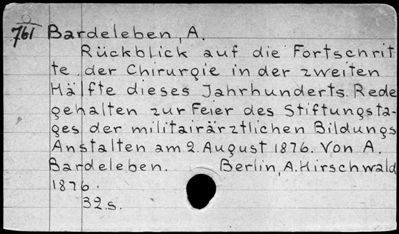 761 Bardeleben, A.
Rückblick auf die Fortschrit
te der Chirurgie in der zweiten
Hälfte dieses Jahrhunderts. Rede
gehalten zur Feier des Stiftungsta-
ges der militairärztlichen Bildungs
Anstalten am 2. August 1876. Von A.
Bardeleben. Berlin, A. Hirschwald
1876.
32 s.